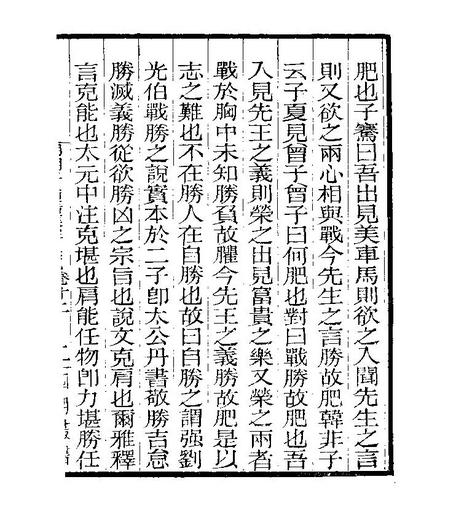 肥也子騫曰吾出見美車馬則欲之入聞先生之言
則又欲之兩心相與戰今先生之言勝故肥韓非子
云子夏見曾子曾子曰何肥也對曰戰勝故肥也吾
入見先王之義則榮之出見富貴之樂又榮之兩者
戰於胸中未知勝負故臞今先王之義勝故肥是以
志之難也不在勝人在自勝也故曰自勝之謂强劉
光伯戰勝之說實本於二子卽太公丹書敬勝吉怠
勝滅義勝從欲勝凶之宗旨也說文克肩也爾雅釋
言克能也太元中注克堪也肩能任物卽力堪勝任